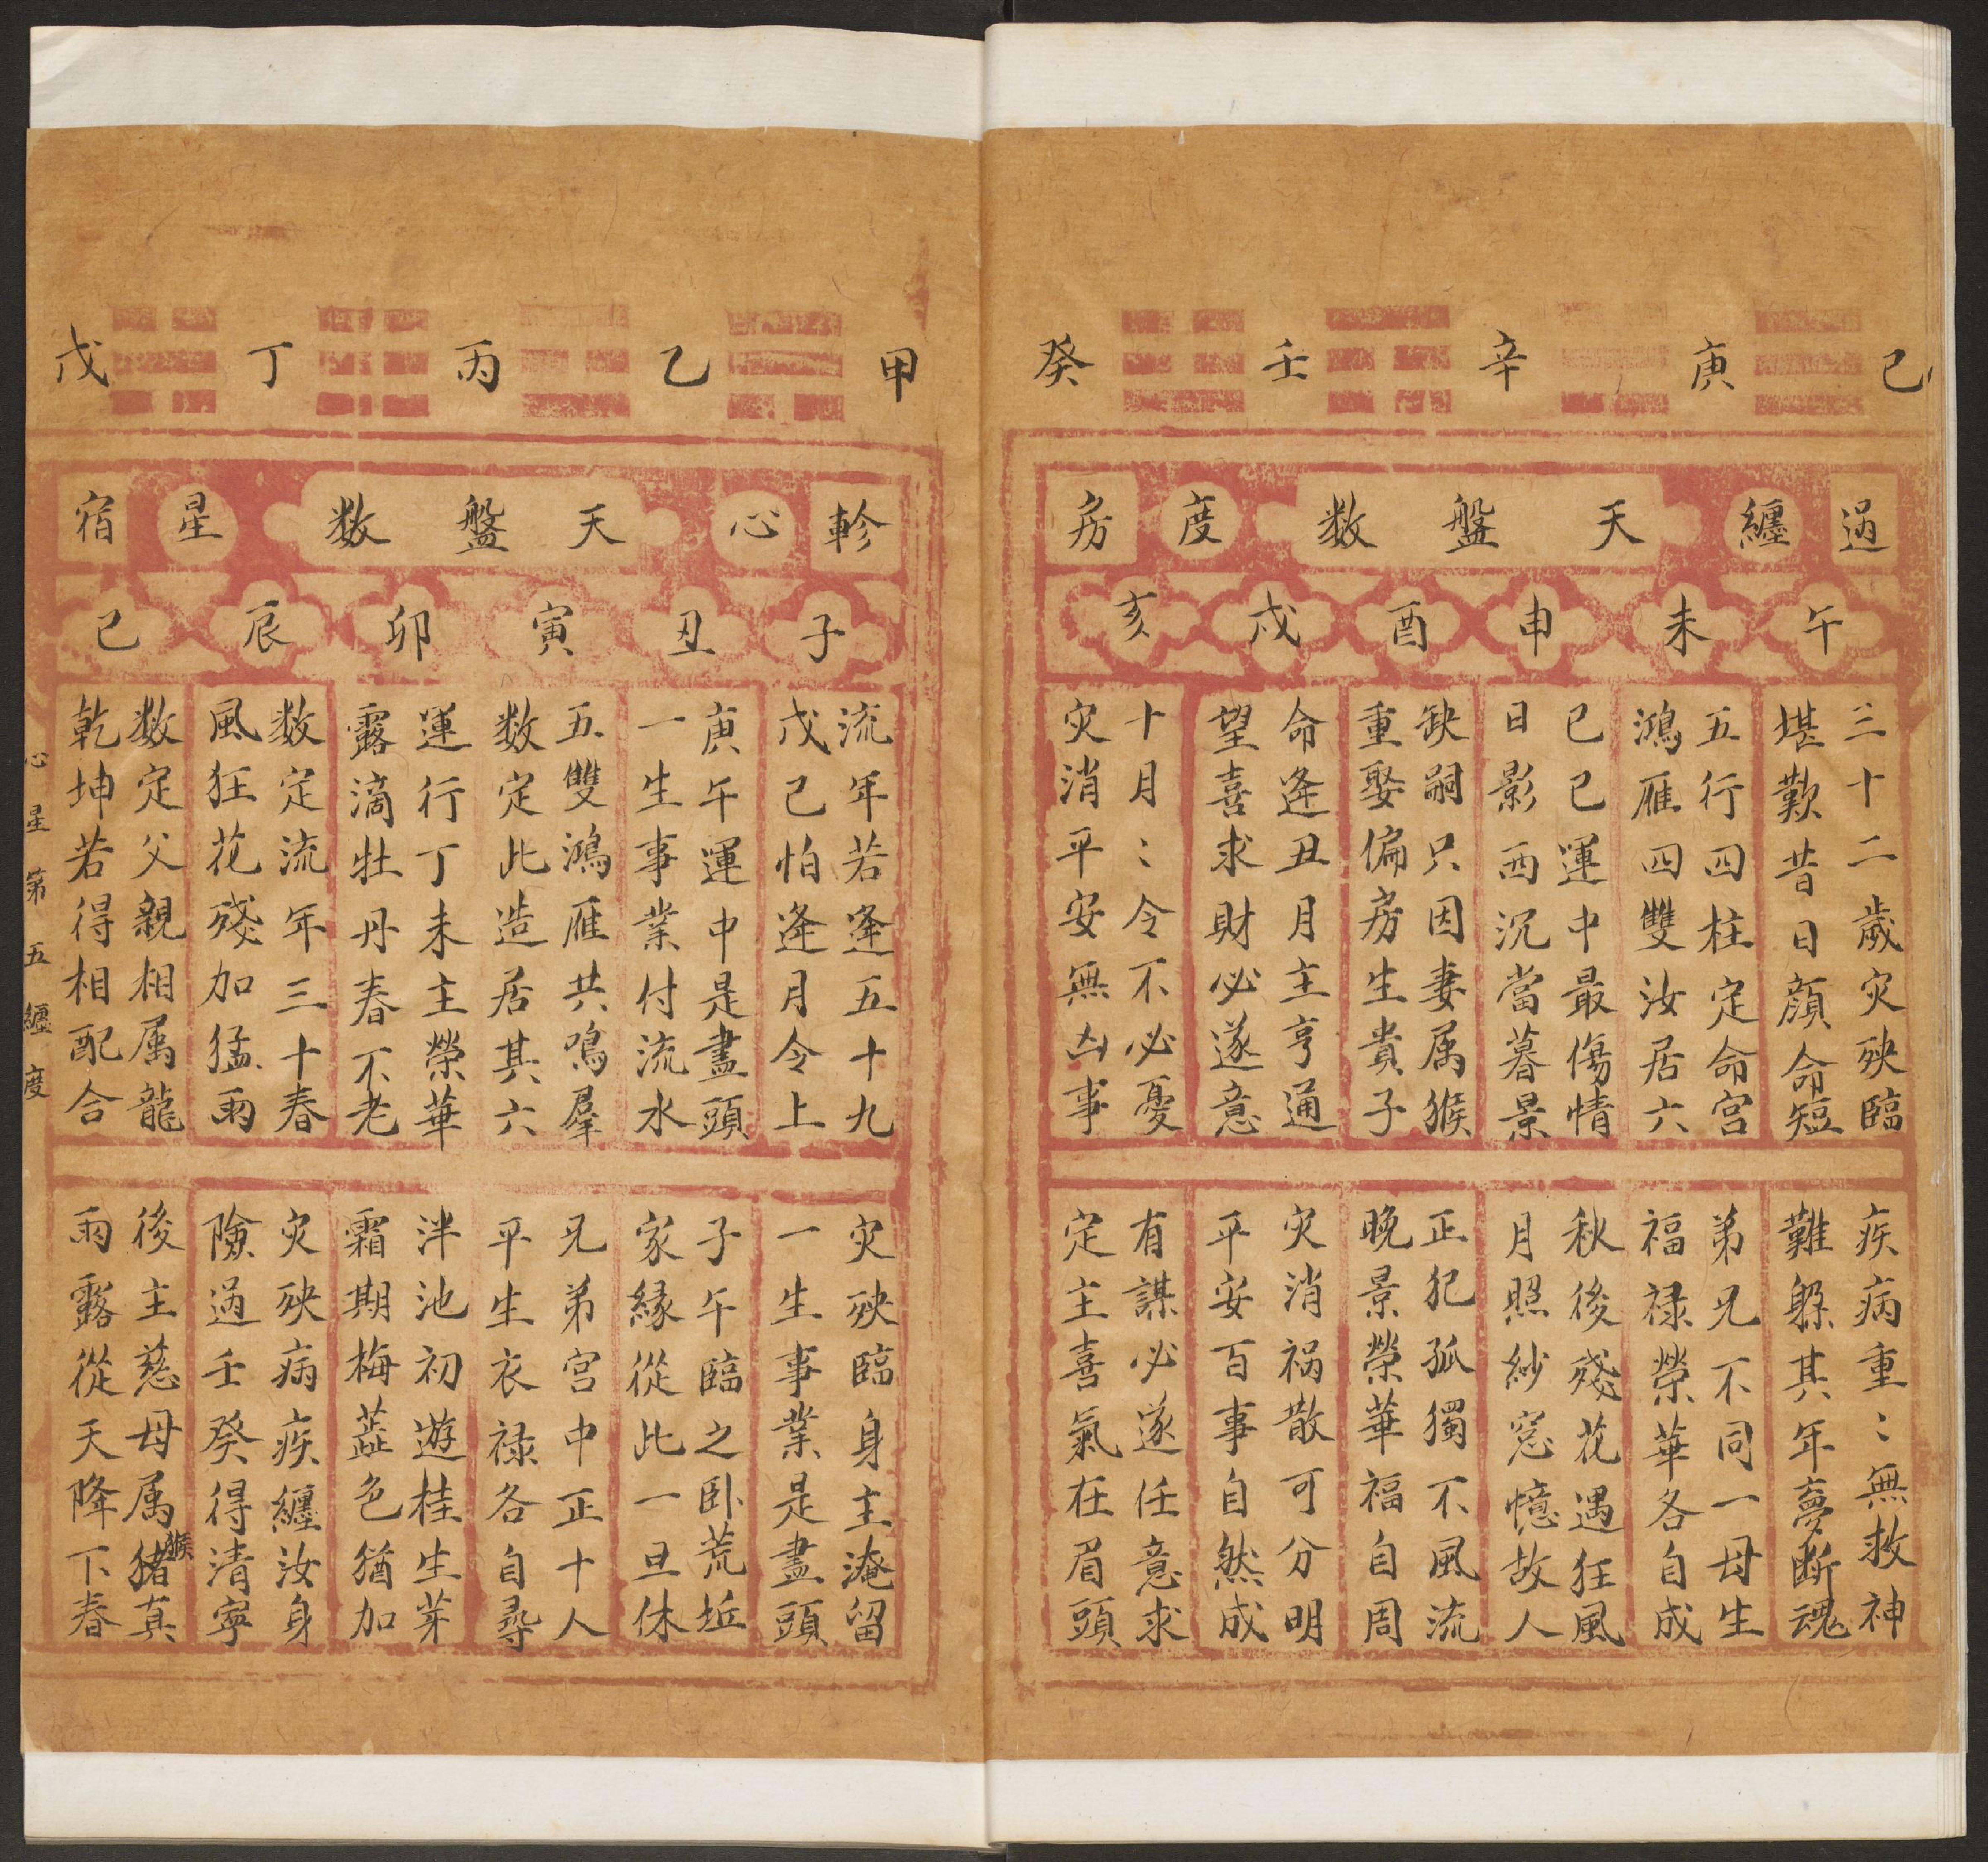 己 庚 辛 壬 癸
過 纏 天盤数 度 房
午 未 申 酉 戌 亥
三十二歲灾殃臨
堪歎昔日顔命短
五行四柱定命宫
鴻雁四雙汝居六
己巳運中最傷情
日影西沉當暮景
缺嗣只因妻属猴
重娶偏房生貴子
命逢丑月主亨通
望喜求財必遂意
十月〻令不必憂
灾消平安無凶事
疾病重〻無救神
難躲其年夢断魂
弟兄不同一母生
福禄榮華各自成
秋後殘花遇狂風
月照紗窓憶故人
正犯孤獨不風流
晚景榮華福自周
灾消祸散可分明
平安百事自然成
有謀必遂任意求
定主喜氣在眉頭
甲 乙 丙 丁 戊
軫 心 天盤数 星 宿
子 丑 寅 卯 辰 巳
流年若逢五十九
戊己怕逢月令上
庚午運中是盡頭
一生事業付流水
五雙鴻雁共鳴羣
数定此造居其六
運行丁未主榮華
露滴牡丹春不老
数定流年三十春
風狂花殘加猛雨
数定父親相属龍
乾坤若得相配合
灾殃臨身主淹留
一生事業是盡頭
子午臨之卧荒坵
家緣從此一旦休
兄弟宫中正十人
平生衣禄各自尋
泮池初遊桂生芽
霜期梅蕋色猶加
灾殃病疾纏汝身
險過壬癸得清寧
後主慈母属豬真
猴
雨露從天降下春
心星第五纏度